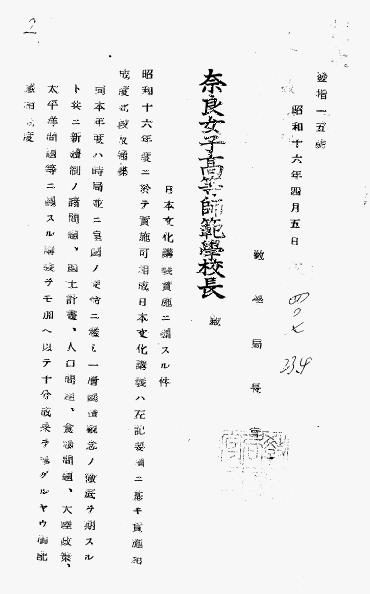 發指一五號
昭和十六年四月五日
教學局長官
奈良女子高等師範學校長 殿
日本文化講義實施ニ關スル件
昭和十六年度ニ於テ實施可相成日本文化講義ハ左記要項ニ基キ實施相
成度
同本年度ハ時局並ニ皇國ノ使命ニ鑑ミ一層國體觀念ノ徹底ヲ期スル
ト共ニ新體制ノ諸問題、國土計畫、人口問題、食糧問題、大陸政策、
太平洋問題等ニ關スル講義ヲモ加ヘ以テ十分成果ヲ擧グルヤウ御配
慮相成度